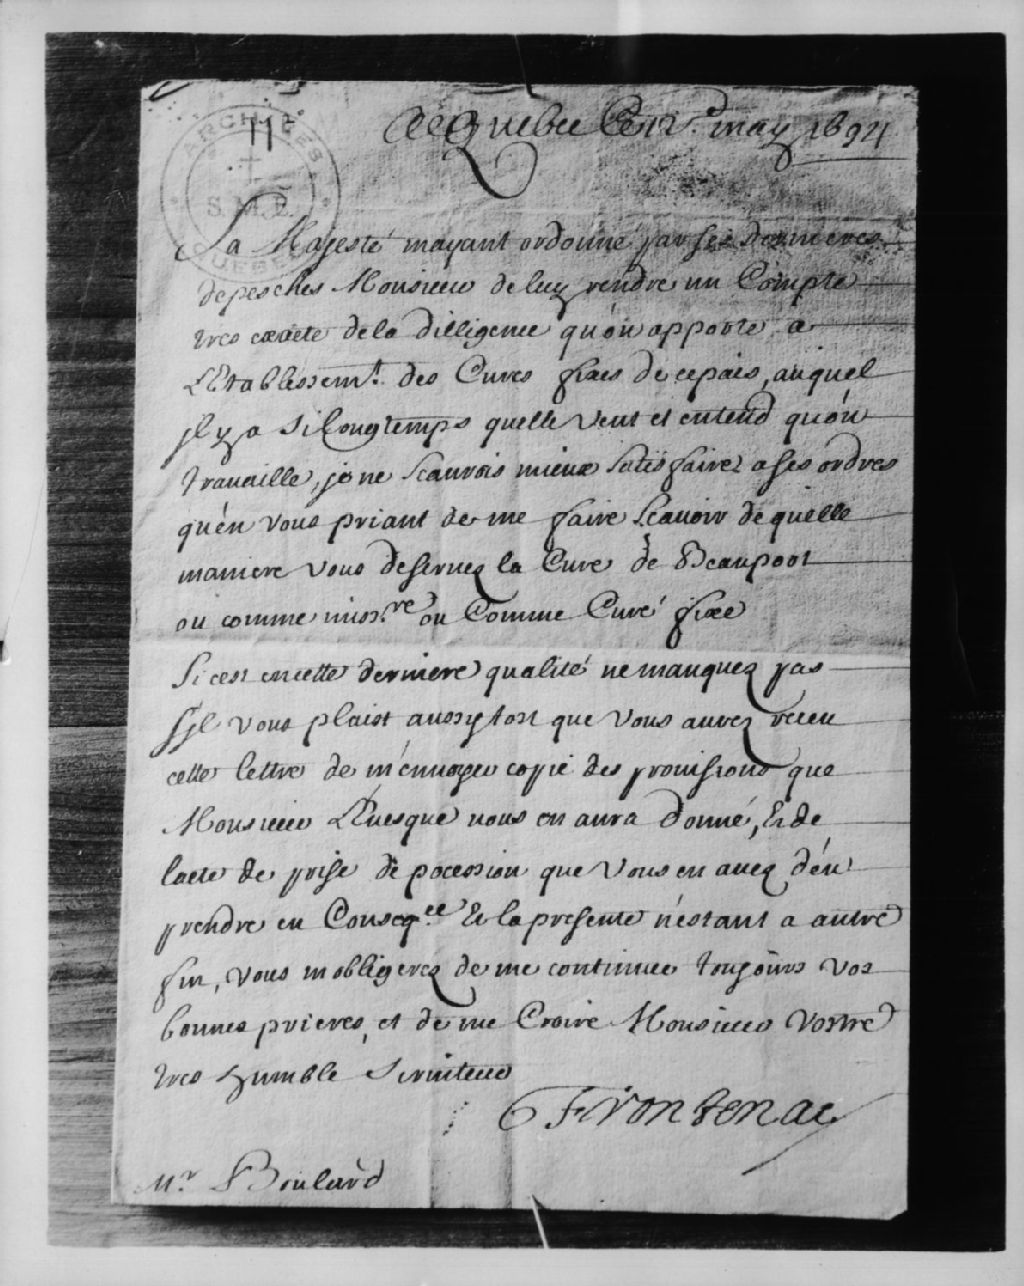 11
ARCHIVES
S.M.E.
QUEBEC
A Quebec le 12e. may 1694
Sa Majesté mayant ordonné par ses dernieres
depesches Monsieur de luy rendre un Compte
tres exacte de la dilligence qu'on apporte a
L'Etablissemt. des Cures fixes de ce pais, auquel
jl y a si Longtemps quelle veut et entend qu'on
travaille, je ne scaurois mieux satisfaire a ses ordres
qu'en vous priant de me faire scauoir de quelle
maniere vous deserues la Cure de Beauport
ou comme missre. ou Comme Curé fixe
Si c'est en cette derniere qualité ne manquez pas
s'jl vous plaist aussytost que vous aurez receu
cette lettre de m'enuoyer copie des prouisions que
Monsieur L'Euesque vous en aura donné, Et de
lacte de prise de pocession que Vous en auez deu
prendre en Conseqce. Et la presente n'estant a autre
fin, vous m'obligerez de me continuer toujours vos
bonnes prieres, et de me Croire Monsieur Vostre
tres humble seruiteur
Frontenac
Mr. Boulard